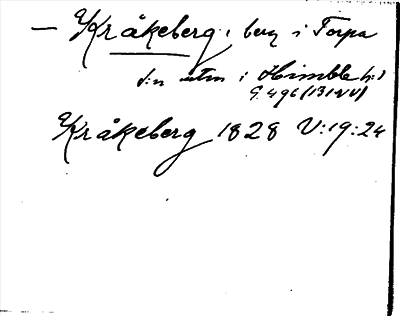 — Kråkeberg, berg i Torpa
s:n utm i Himble h:d
G. 496 (131 VV)
Kråkeberg 1828 V:19:24